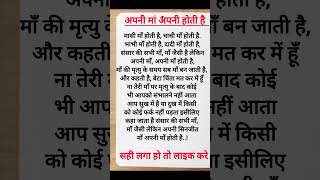 अपनी मां अपनी होती है
मासी माँ होती है, भाभी माँ होती है.
भाभी माँ होती है, दादी माँ होती है,
संसार की सभी माँ, माँ जैसी है लेकिन
अपनी माँ, अपनी माँ होती है,
माँ की मृत्यु के समय सब माँ बन जाती है,
और कहती है, बेटा चिंता मत कर में हूँ
ना तेरी माँ पर मृत्यु के बाद कोई
भी आपको संभालने नहीं आता
आप सुख में है या दुख में किसी
को कोई फर्क नहीं पड़ता इसीलिए
कहा जाता है संसार की सभी माँ,
माँ जैसी लेकिन अपनी सिनजीत
माँ अपनी माँ होती है..!
सही लगा हो तो लाइक करे